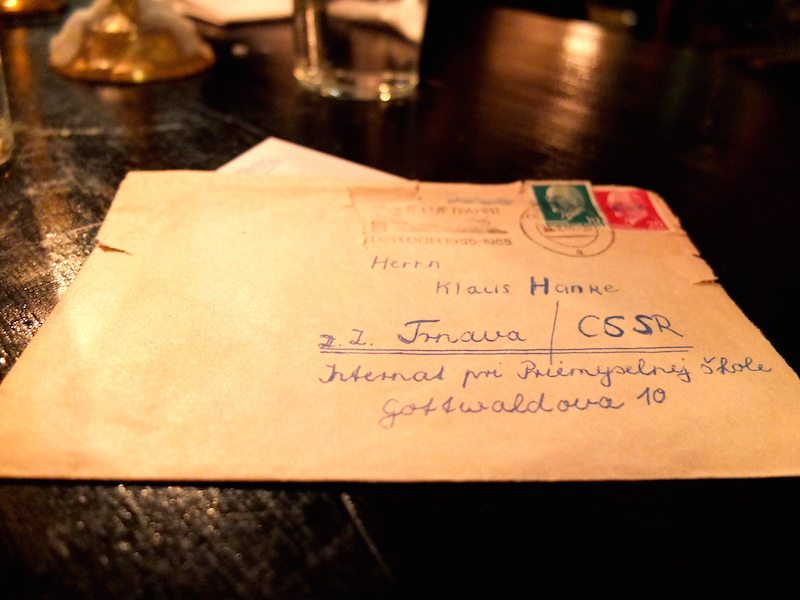 1965
Herrn
Klaus Hanke
z. Z. Trnava / CSSR
Internat pri Priemyselnej Škole
Gottwaldova 10